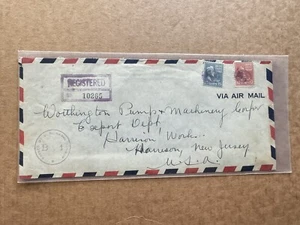 REGISTERED
10265
VIA AIR MAIL
Worthington Pump & Machinery Corp'n
Export Dept.
Harrison Works
Harrison, New Jersey
U.S.A.